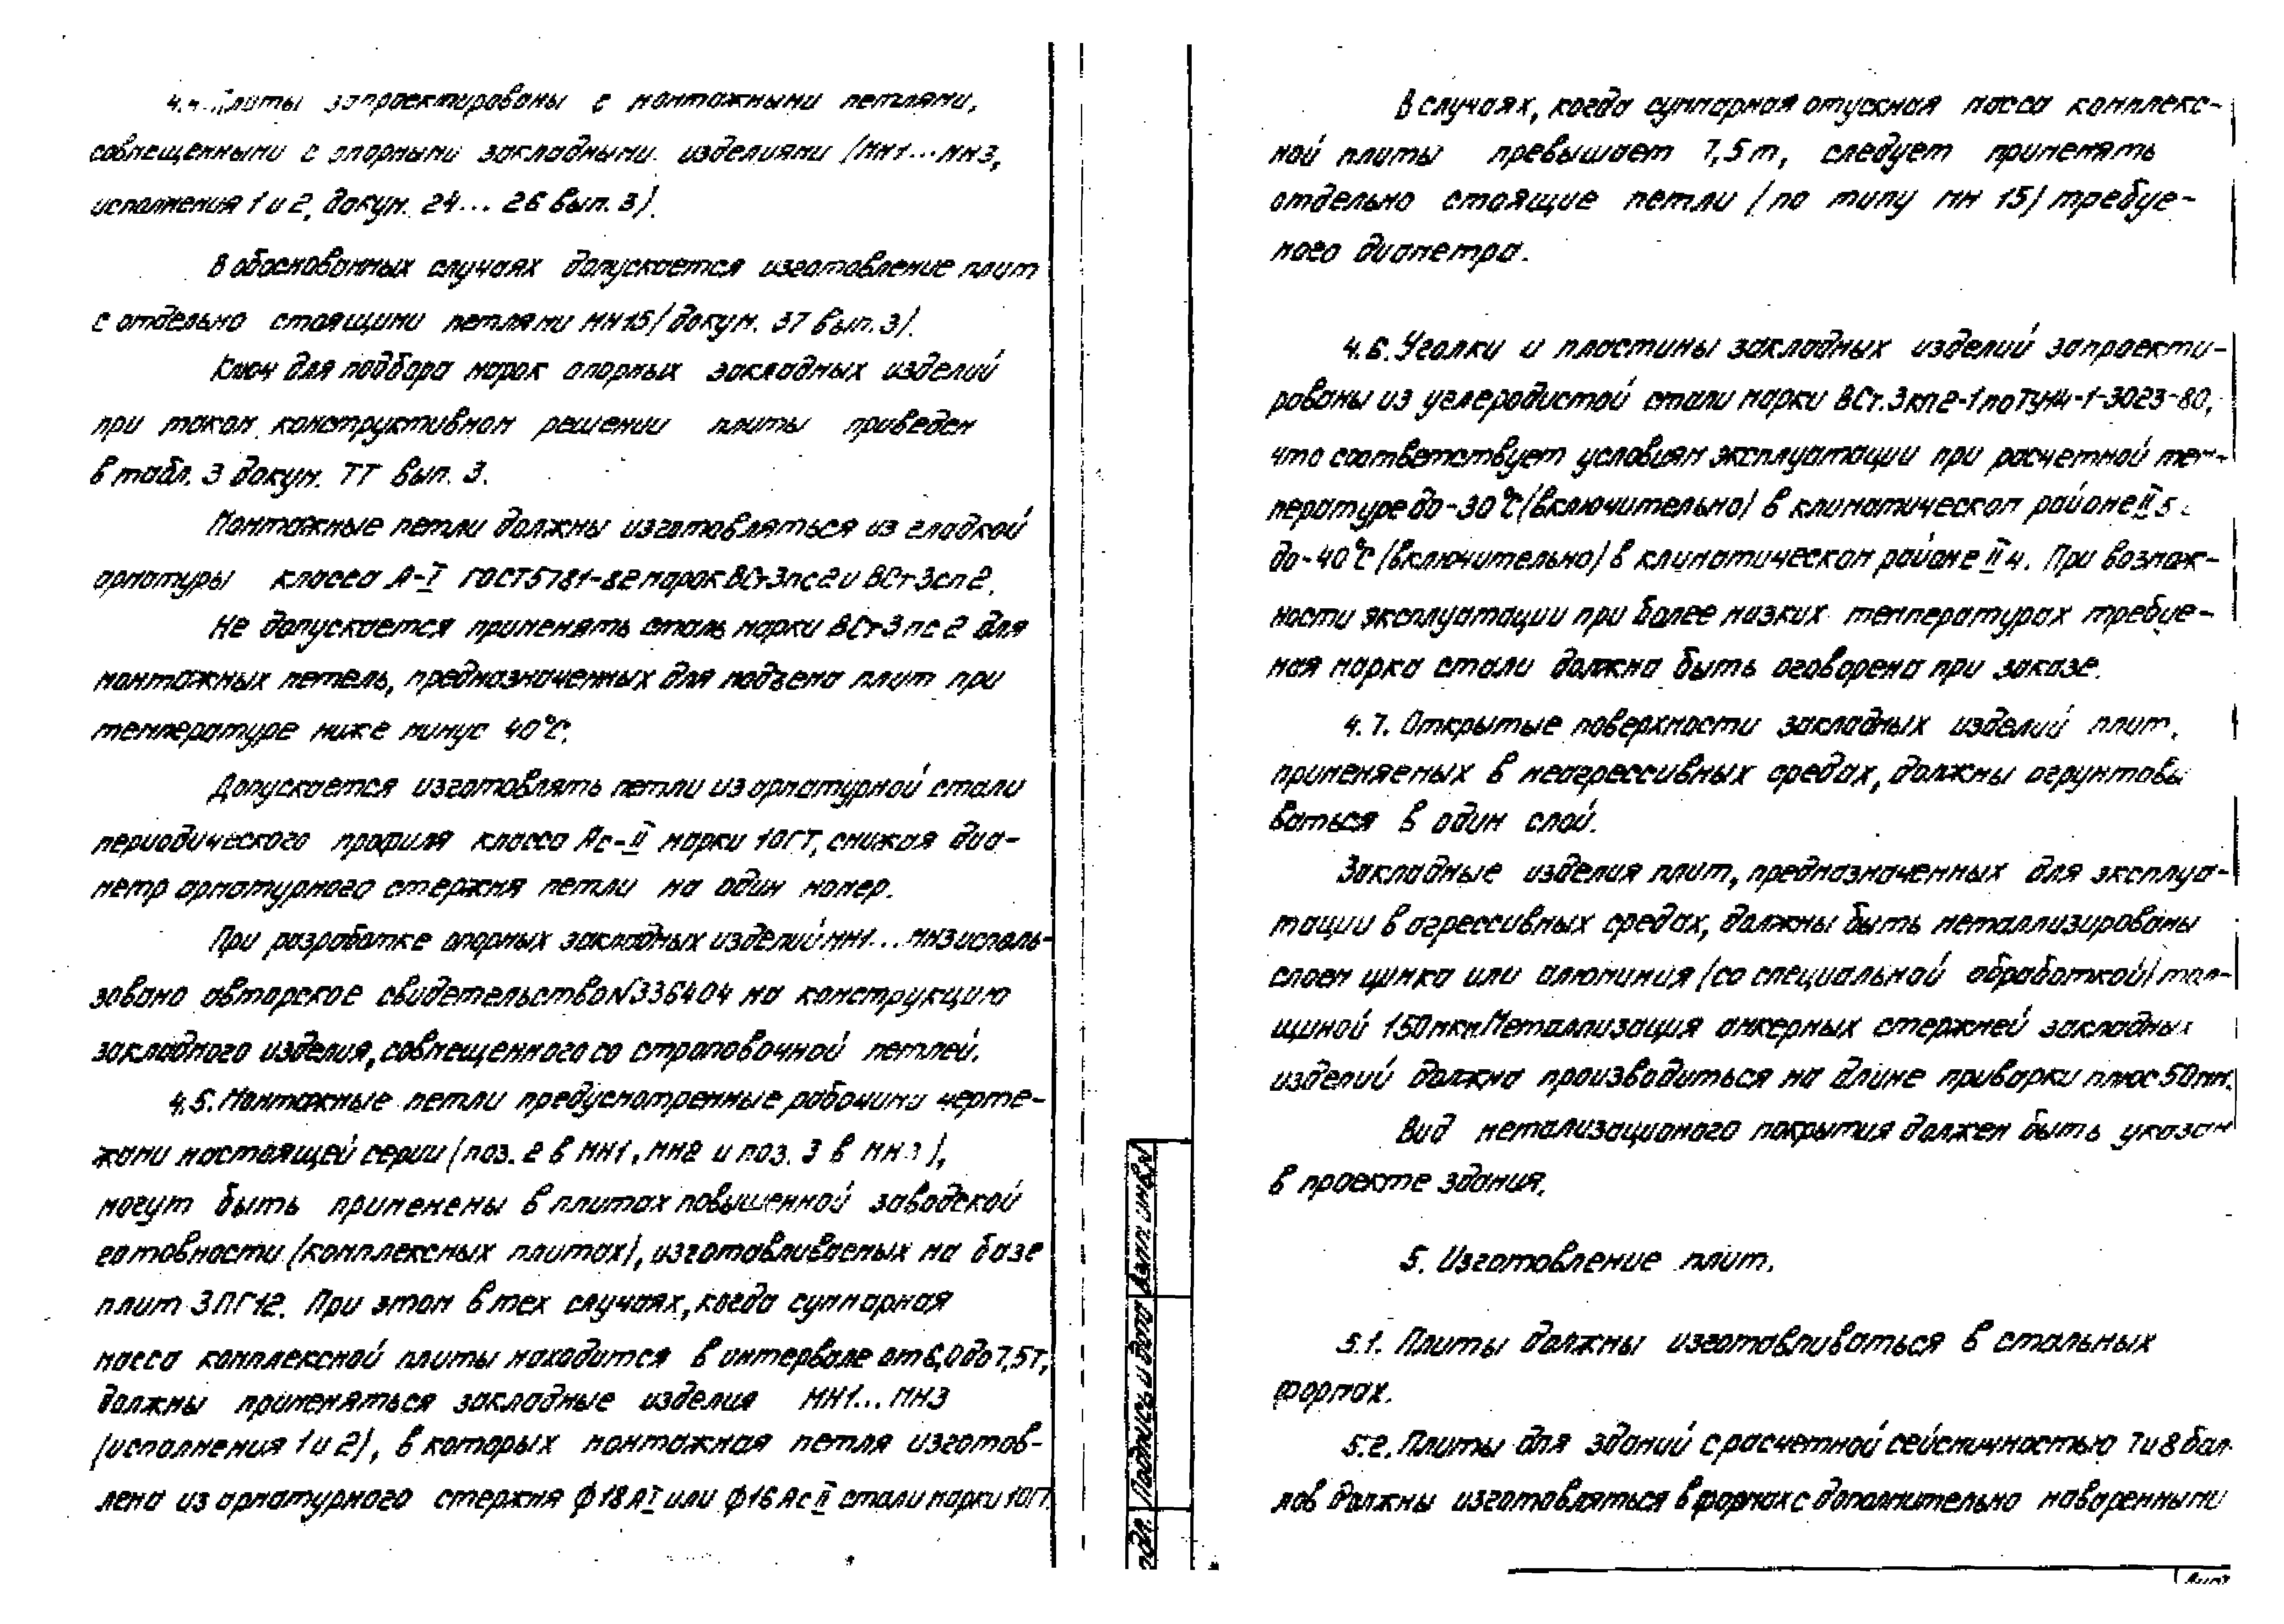 4.4. Плиты запроектированы с монтажными петлями,
совмещенными с опорными закладными изделиями (МН1...МН3,
исполнения 1 и 2, докум. 24... 26 вып. 3).
В обоснованных случаях допускается изготовление плит
с отдельно стоящими петлями МН15 (докум. 37 вып. 3).
Ключ для подбора марок опорных закладных изделий
при таком конструктивном решении плиты приведен
в табл. 3 докум. ТТ вып. 3.
Монтажные петли должны изготовляться из гладкой
арматуры класса А-I ГОСТ 5781-82 марок ВСт3пс2 и ВСт3сп2.
Не допускается применять сталь марки ВСт3пс2 для
монтажных петель, предназначенных для подъема плит при
температуре ниже минус 40°С.
Допускается изготовлять петли из арматурной стали
периодического профиля класса Ас-II марки 10ГТ, снижая диа-
метр арматурного стержня петли на один номер.
При разработке опорных закладных изделий МН1...МН3 исполь-
зовано авторское свидетельство №336404 на конструкцию
закладного изделия, совмещенного со строповочной петлей.
4.5. Монтажные петли предусмотренные рабочими черте-
жами настоящей серии (поз. 2 в МН1, МН2 и поз. 3 в МН3),
могут быть применены в плитах повышенной заводской
готовности (комплексных плитах), изготавливаемых на базе
плит 3ПГ12. При этом в тех случаях, когда суммарная
масса комплексной плиты находится в интервале от 6,0 до 7,5т,
должны применяться закладные изделия МН1...МН3
(исполнения 1 и 2), в которых монтажная петля изготов-
лена из арматурного стержня ф18 АI или ф16 Ас II стали марки 10ГТ
Взам. инв.N
Подпись и дата
подл.
В случаях, когда суммарная отпускная масса комплекс-
ной плиты превышает 7,5т, следует применять
отдельно стоящие петли (по типу МН 15) требуе-
мого диаметра.
4.6. Уголки и пластины закладных изделий запроекти-
рованы из углеродистой стали марки ВСт.3кп2-1 по ТУ14-1-3023-80,
что соответствует условиям эксплуатации при расчетной тем-
пературе до -30°С (включительно) в климатическом районе II5
до -40°С (включительно) в климатическом районе II4. При возмож-
ности эксплуатации при более низких температурах требуе-
мая марка стали должна быть оговорена при заказе.
4.7. Открытые поверхности закладных изделий плит,
применяемых в неагрессивных средах, должны огрунтовы
ваться в один слой.
Закладные изделия плит, предназначенных для эксплуа-
тации в агрессивных средах, должны быть металлизированы
слоем цинка или алюминия (со специальной обработкой) тол-
щиной 150мкм Металлизация анкерных стержней закладных
изделий должна производиться на длине приварки плюс 50мм.
Вид метализационого покрытия должен быть указан
в проекте здания.
5. Изготовление плит.
5.1. Плиты должны изготавливаться в стальных
формах.
5.2. Плиты для зданий с расчетной сейсмичностью 7 и 8 бал-
лов должны изготовляться в формах с дополнительно наваренными
Лист